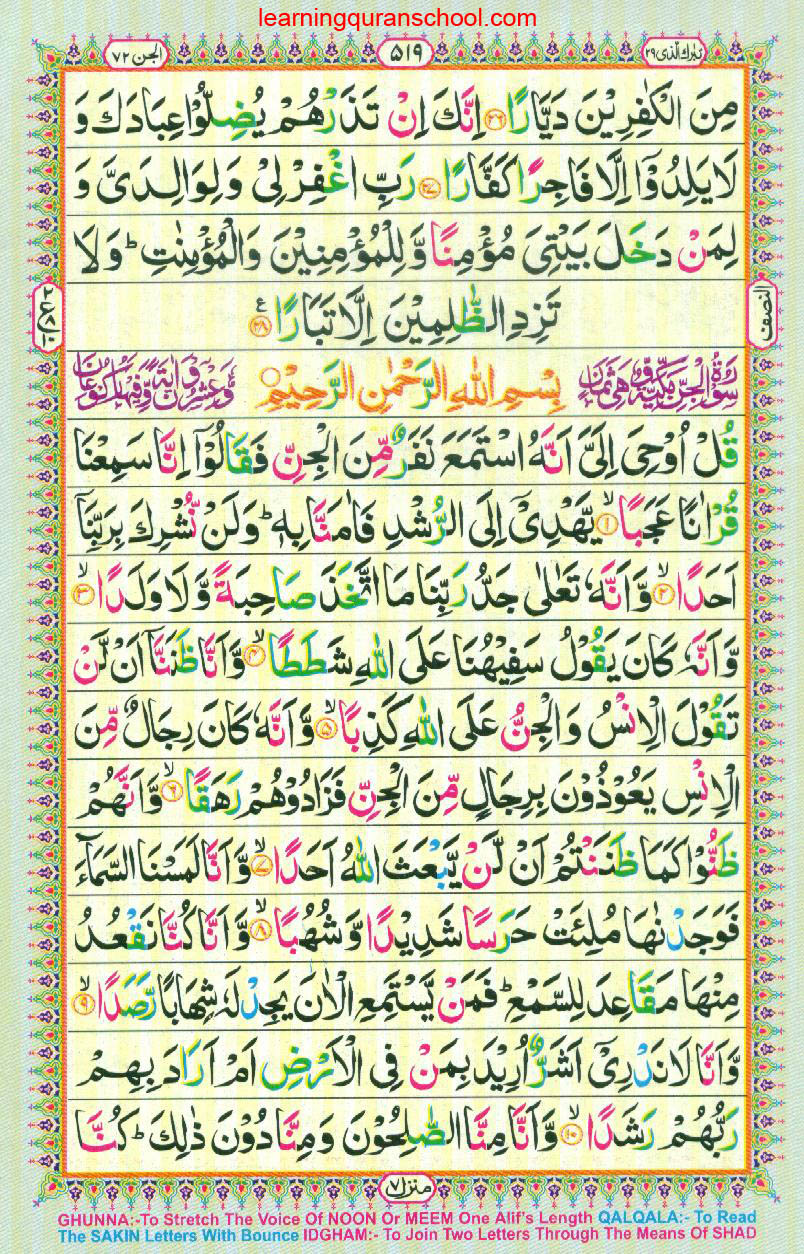 learningquranschool.com
تبٰرك الذی ۲۹
۵۱۹
الجن ۷۲
مِنَ الْكٰفِرِیْنَ دَیَّارًا ۲۶ اِنَّكَ اِنْ تَذَرْهُمْ یُضِلُّوْا عِبَادَكَ وَ
لَا یَلِدُوْۤا اِلَّا فَاجِرًا كَفَّارًا ۲۷ رَبِّ اغْفِرْ لِیْ وَ لِوَالِدَیَّ وَ
لِمَنْ دَخَلَ بَیْتِیَ مُؤْمِنًا وَّ لِلْمُؤْمِنِیْنَ وَ الْمُؤْمِنٰتِ ؕ وَ لَا
تَزِدِ الظّٰلِمِیْنَ اِلَّا تَبَارًا ۲۸ ع
النصف
سُوْرَةُ الْجِنِّ مَكِّیَّةٌ وَّ هِیَ ثَمَانٍ
بِسْمِ اللّٰهِ الرَّحْمٰنِ الرَّحِیْمِ
وَّ عِشْرُوْنَ اٰیَةً وَّ فِیْهَا رُكُوْعَانِ
قُلْ اُوْحِیَ اِلَیَّ اَنَّهُ اسْتَمَعَ نَفَرٌ مِّنَ الْجِنِّ فَقَالُوْۤا اِنَّا سَمِعْنَا
قُرْاٰنًا عَجَبًا ۙ۱ یَّهْدِیْۤ اِلَی الرُّشْدِ فَاٰمَنَّا بِهٖ ؕ وَ لَنْ نُّشْرِكَ بِرَبِّنَاۤ
اَحَدًا ۙ۲ وَّ اَنَّهٗ تَعٰلٰی جَدُّ رَبِّنَا مَا اتَّخَذَ صَاحِبَةً وَّ لَا وَلَدًا ۙ۳
وَّ اَنَّهٗ كَانَ یَقُوْلُ سَفِیْهُنَا عَلَی اللّٰهِ شَطَطًا ۙ۴ وَّ اَنَّا ظَنَنَّاۤ اَنْ لَّنْ
تَقُوْلَ الْاِنْسُ وَ الْجِنُّ عَلَی اللّٰهِ كَذِبًا ۙ۵ وَّ اَنَّهٗ كَانَ رِجَالٌ مِّنَ
الْاِنْسِ یَعُوْذُوْنَ بِرِجَالٍ مِّنَ الْجِنِّ فَزَادُوْهُمْ رَهَقًا ۙ۶ وَّ اَنَّهُمْ
ظَنُّوْا كَمَا ظَنَنْتُمْ اَنْ لَّنْ یَّبْعَثَ اللّٰهُ اَحَدًا ۙ۷ وَّ اَنَّا لَمَسْنَا السَّمَآءَ
فَوَجَدْنٰهَا مُلِئَتْ حَرَسًا شَدِیْدًا وَّ شُهُبًا ۙ۸ وَّ اَنَّا كُنَّا نَقْعُدُ
مِنْهَا مَقَاعِدَ لِلسَّمْعِ ؕ فَمَنْ یَّسْتَمِعِ الْاٰنَ یَجِدْ لَهٗ شِهَابًا رَّصَدًا ۙ۹
وَّ اَنَّا لَا نَدْرِیْۤ اَشَرٌّ اُرِیْدَ بِمَنْ فِی الْاَرْضِ اَمْ اَرَادَ بِهِمْ
رَبُّهُمْ رَشَدًا ۙ۱۰ وَّ اَنَّا مِنَّا الصّٰلِحُوْنَ وَ مِنَّا دُوْنَ ذٰلِكَ ؕ كُنَّا
منزل ۷
GHUNNA:-To Stretch The Voice Of NOON Or MEEM One Alif's Length QALQALA:- To Read
The SAKIN Letters With Bounce IDGHAM:- To Join Two Letters Through The Means Of SHAD